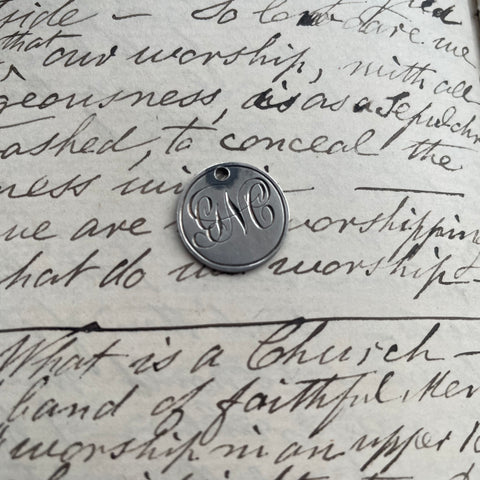 side — So
that our worship, with all
geousness, is as a Sepulchr
ashed, to conceal the
ness
we are worshipping
hat do worship—
GMC
What is a Church—
band of faithful Mer
worship in an upper